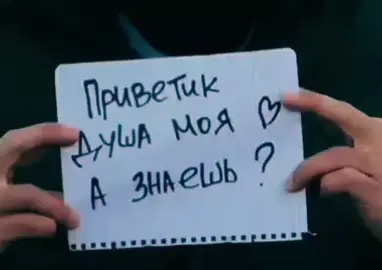 Приветик
душа моя ♡
А знаешь ?